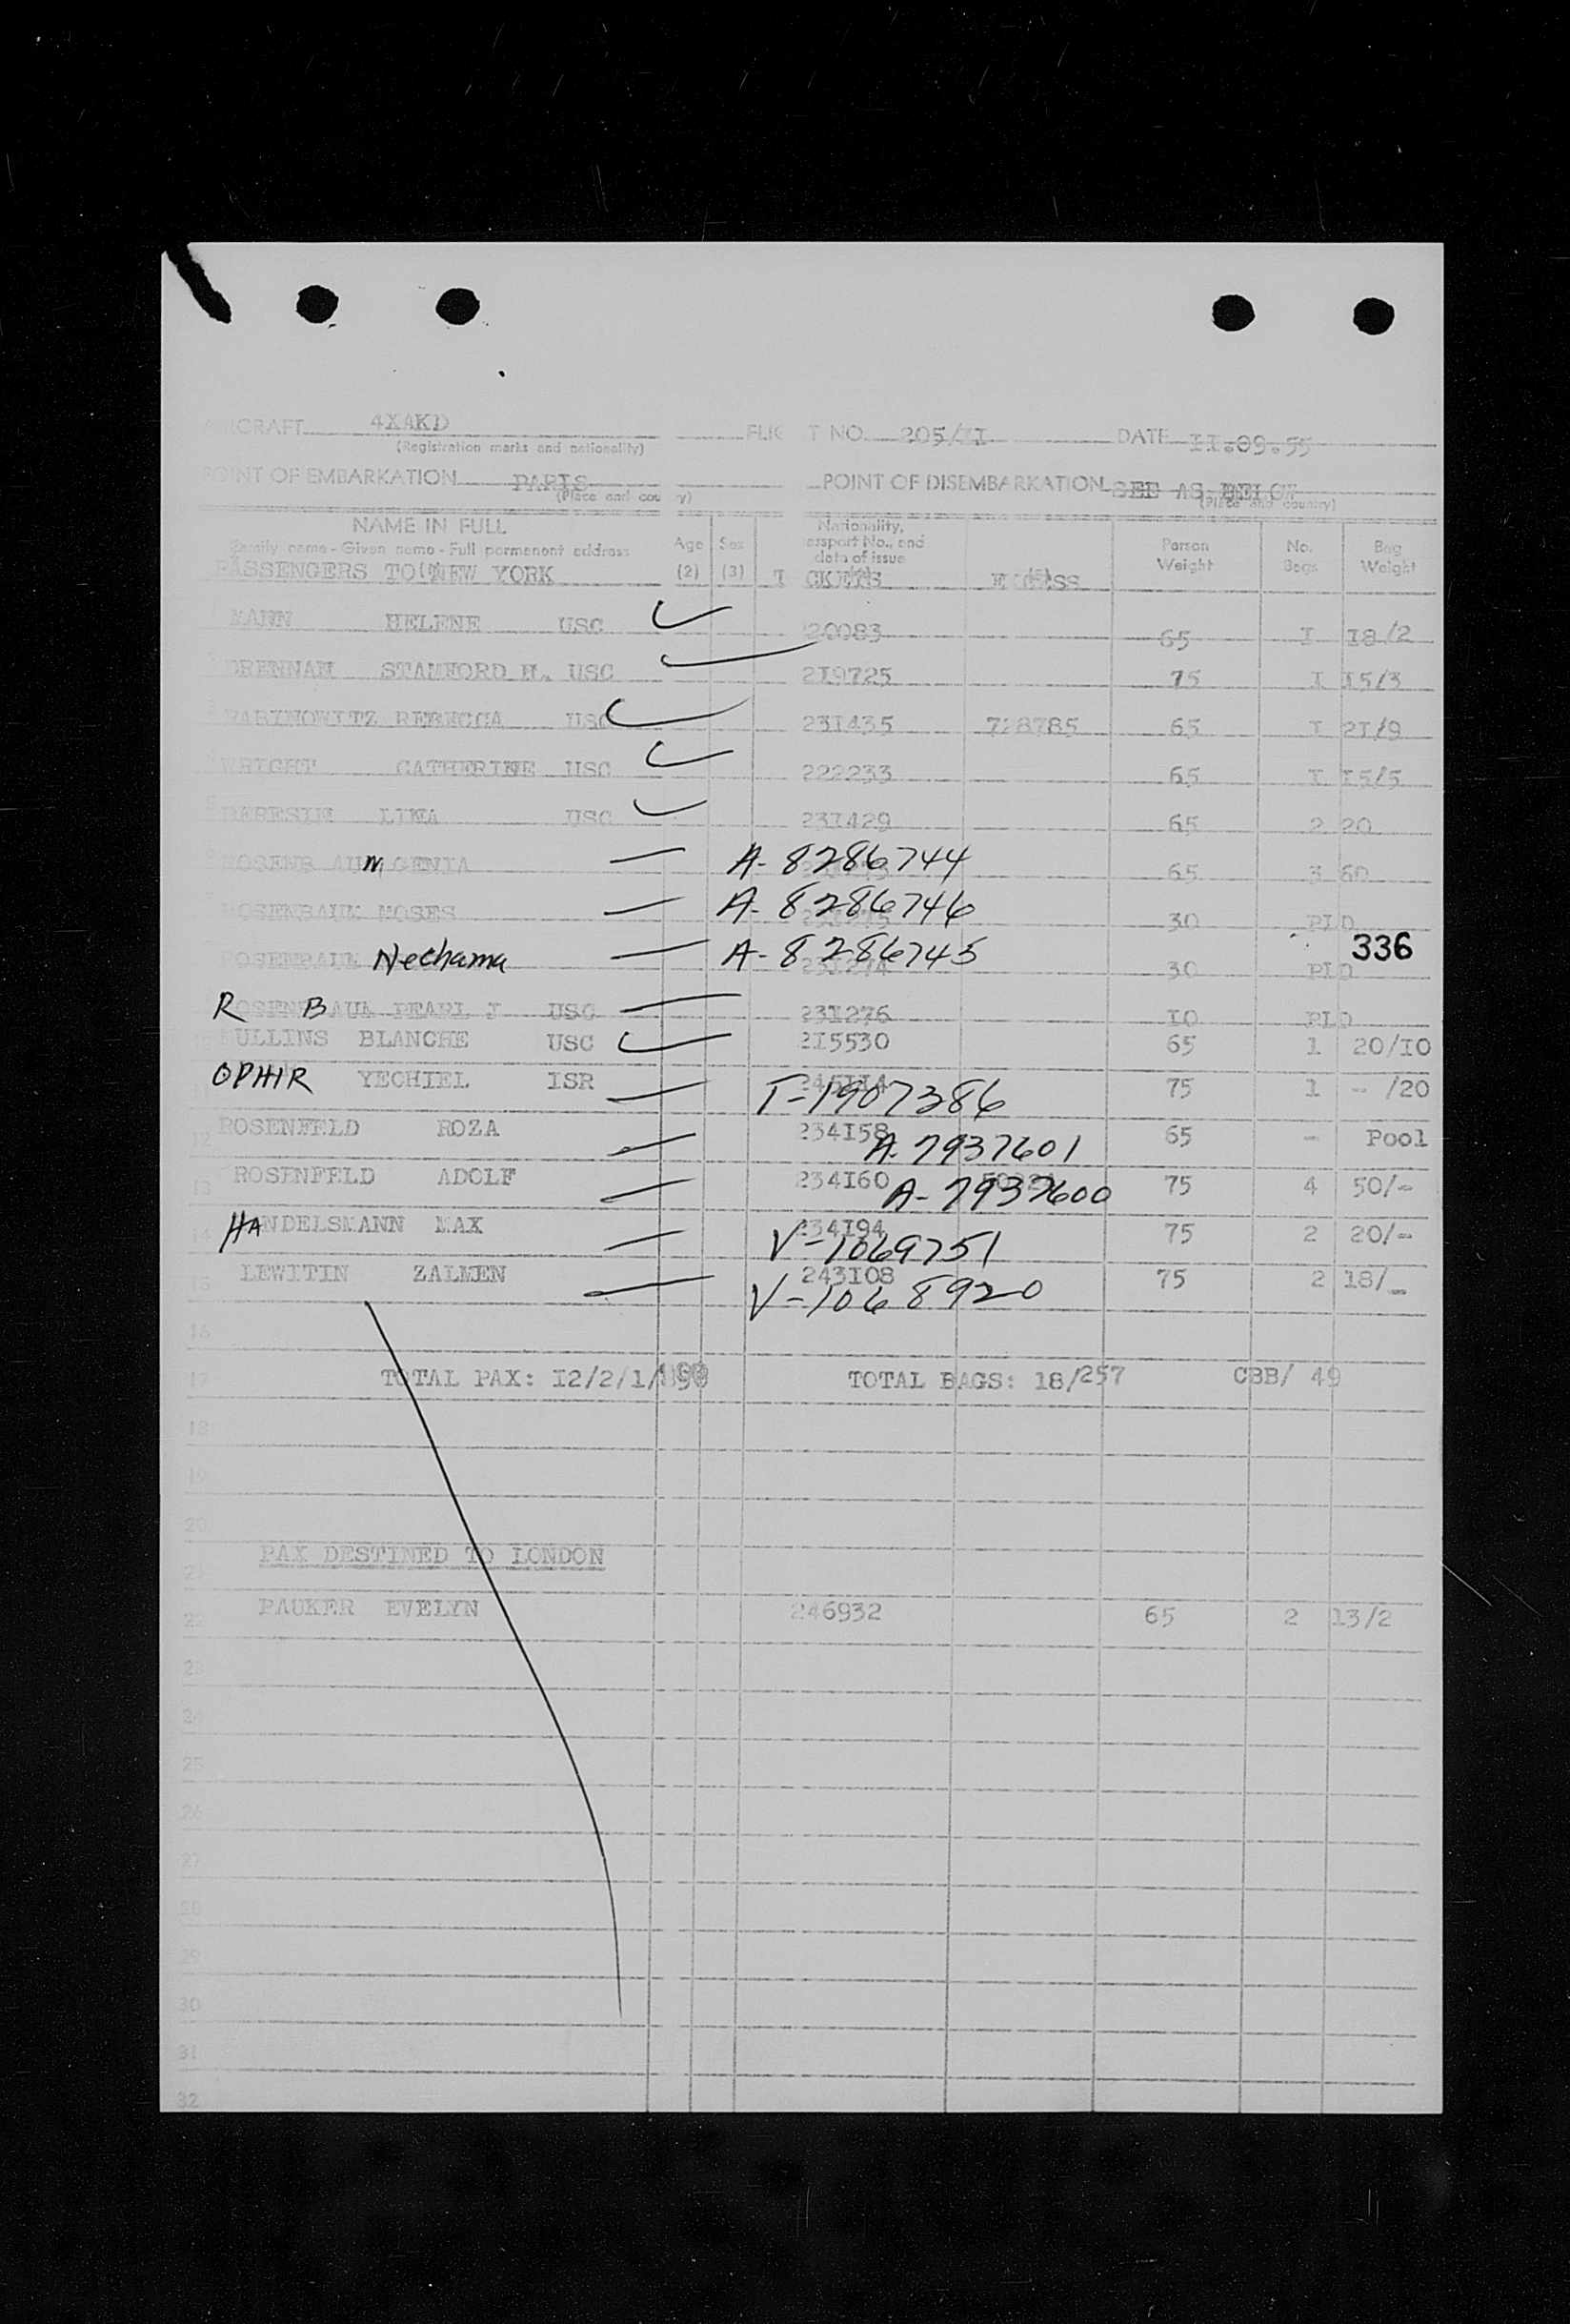 AIRCRAFT 4XAKD FLIGHT NO. 205/ DATE 11.09.55
(Registration marks and nationality)
POINT OF EMBARKATION PARIS POINT OF DISEMBARKATION SEE AS BELOW
(Place and country) (Place and country)
NAME IN FULL Age Sex Nationality, Person No. Bag
Family name - Given name - Full permanent address passport No., and Weight Bags Weight
date of issue
PASSENGERS TO NEW YORK (2) (3) TICKETS EXCESS
MANN HELENE USC 20083 65 I I8/2
STAMFORD H. USC 2I9725 75 I I5/3
REBECCA USC 23I435 728785 65 I 2I/9
WRIGHT CATHERINE USC 222233 65 I I5/5
BERESIN USC 23I429 65 2 20
ROSENBAUM GENIA A- 8286744 65 3 60
ROSENBAUM MOSES A- 8286746 30 PLD
ROSENBAUM Nechama A- 8286745 30 PLD
336
ROSENBAUM PEARL J USC 23I276 I0 PLD
BLANCHE USC 2I5530 65 1 20/I0
OPHIR YECHIEL ISR T-1907386 75 1 - /20
12 ROSENFELD ROZA 234I58 65 - Pool
A-7937601
13 ROSENFELD ADOLF 234I60 75 4 50/-
A-7937600
14 HANDELSMANN MAX 234I94 75 2 20/-
V-1069751
15 LEWITIN ZALMEN 243I08 75 2 18/-
V-1068920
16
17 TOTAL PAX: I2/2/1/ TOTAL BAGS: 18/257 CBB/ 49
18
19
20
21 PAX DESTINED TO LONDON
22 PAUKER EVELYN 246932 65 2 13/2
23
24
25
26
27
28
29
30
31
32